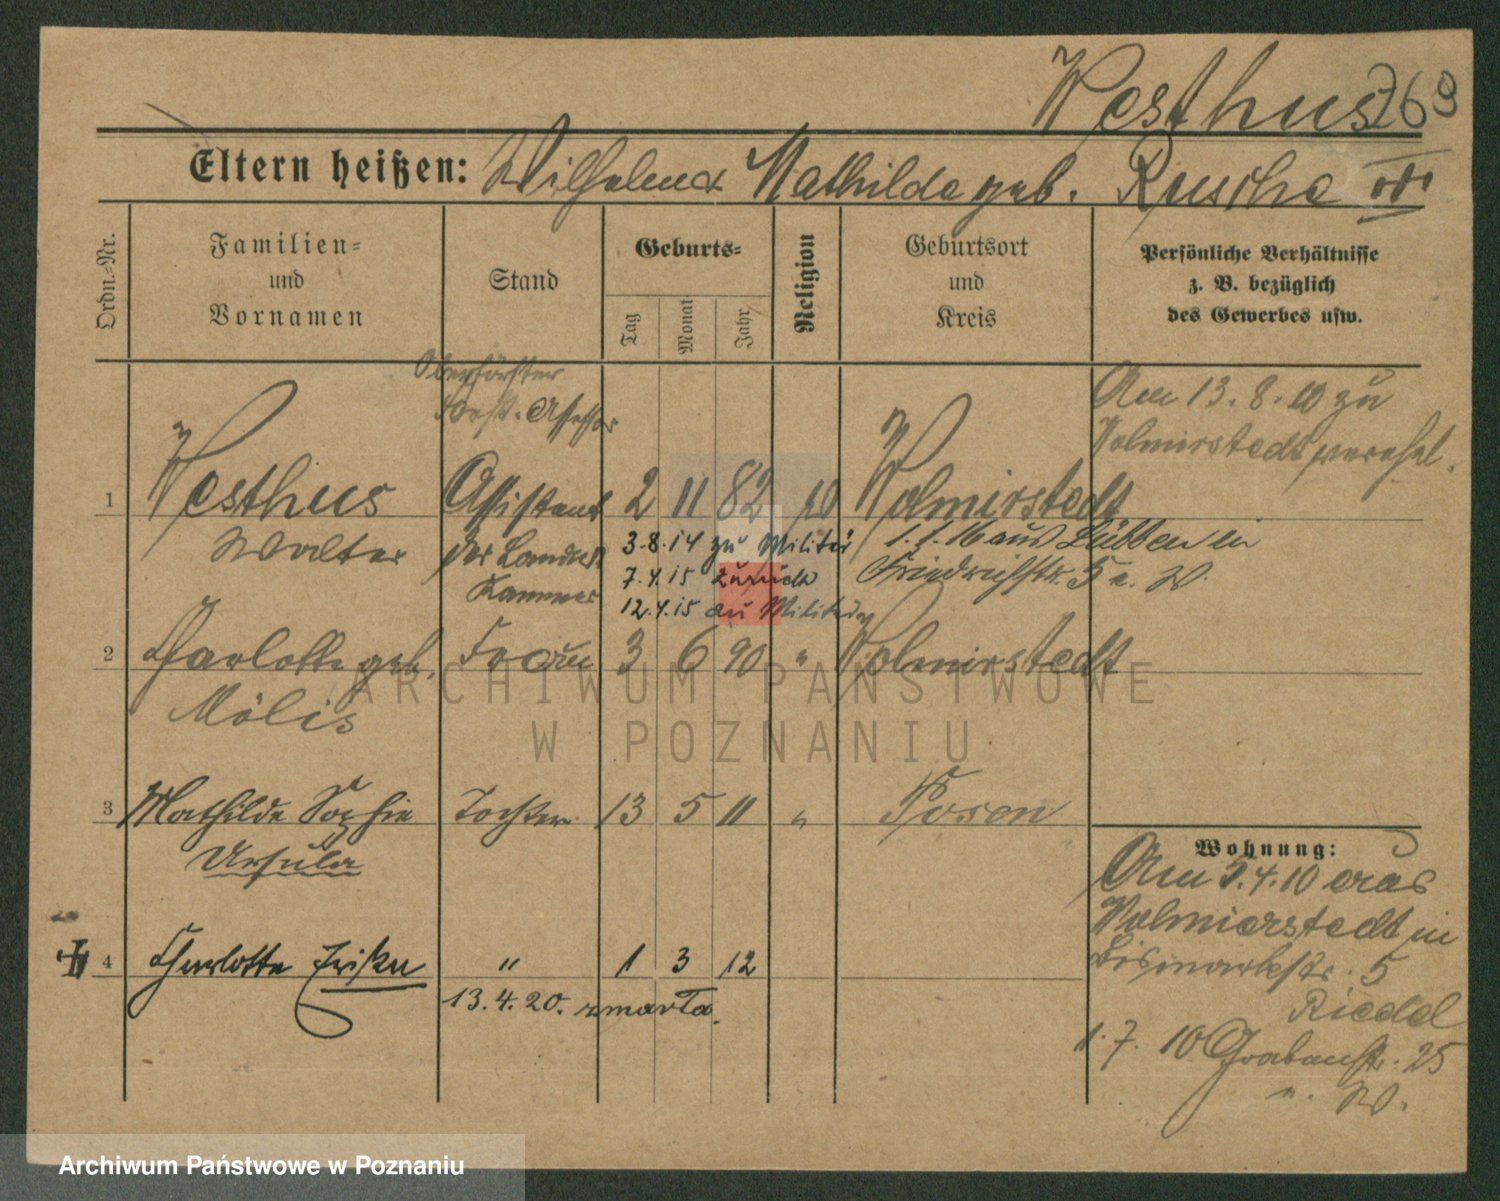 Westhus 769
Eltern heißen: Wilhelm u. Mathilde geb. Rusche
Ordn.-Nr.
Familien-
und
Vornamen
Stand
Geburts-
Tag
Monat
Jahr
Religion
Geburtsort
und
Kreis
Persönliche Verhältnisse
z. B. bezüglich
des Gewerbes usw.
Oberförster
Forst-Assessor
Am 13.8.10 zu
Wolmirstedt verehel.
1 Westhus Assistent 2 11 82 Wolmirstedt
Walter der Landw.
Kammer
3.8.14 zu Militär
7.4.15 zurück
12.4.15 zu Militär
1.1.16 aus Lübben in
Friedrichstr. 5 e. W.
2 Charlotte geb. Frau 3 6 90 " Wolmirstedt
Mölis
3 Mathilde Sophie Tochter 13 5 11 " Posen
Ursula
4 Charlotte " 1 3 12
13.4.20. zmarła.
Wohnung:
Am 1.4.10 aus
Wolmirstedt in
Bismarckstr. 5
Riedel
1.7.10 Grabenstr. 25
e. W.
ARCHIWUM PAŃSTWOWE
W POZNANIU
Archiwum Państwowe w Poznaniu